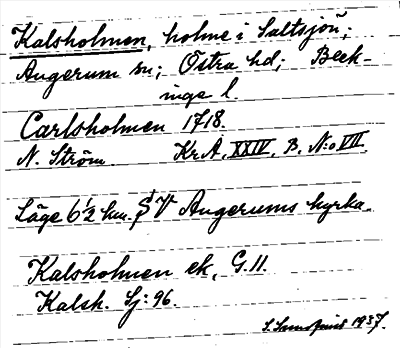 Kalsholmen, holme i Saltsjön;
Augerum sn; Östra hd; Bleck-
inge l.
Carlsholmen 1718.
N. Ström. Kr.A. XXIV, B. N:o VII.
Läge 6 1/2 km. SV Augerums kyrka.
Kalsholmen ek, G.11.
Kalsh. Sj: 96.
S. 1937.